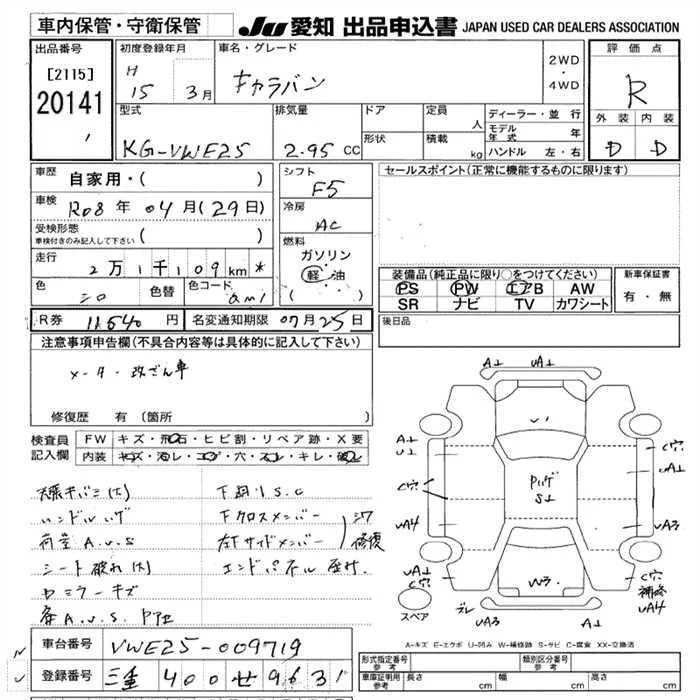 車内保管・守衛保管
JU愛知 出品申込書 JAPAN USED CAR DEALERS ASSOCIATION
出品番号
[2115]
20141
初度登録年月
H 15 3月
車名・グレード
キャラバン
2WD
・
4WD
評価点
R
外装 内装
D D
型式
KG-VWE25
排気量
2.95 CC
ドア
形状
定員 人
積載 kg
ディーラー・並行
モデル年式 年
ハンドル 左・右
車歴
自家用・( )
車検
R08年 04月(29日)
受検形態
車検付きのみ記入して下さい ( )
走行
2万1千109km *
色
シロ
色替
色コード
シフト
F5
冷房
AC
燃料
ガソリン
軽油
( )
セールスポイント(正常に機能するものに限ります)
装備品(純正品に限り○をつけてください)
PS PW エアB AW
SR ナビ TV カワシート
新車保証書
有・無
R券 11,540 円
名変通知期限 07月25日
後日品
注意事項申告欄(不具合内容等は具体的に記入して下さい)
メーター改ざん車
修復歴 有 (箇所 )
検査員記入欄
FW キズ・飛石・ヒビ割・リペア跡・X要
内装 キズ・汚レ・コゲ・穴・スレ・キレ・破レ
天張キバミ(大)
ハンドルハゲ
荷室A.U.S
シート破れ(大)
ミラーキズ
各A.U.S
下廻りS.C
下クロスメンバー
左下サイドメンバー
修復
エンドパネル
A⊥
UA⊥
U'
A⊥
U⊥
C穴
UA4
UA⊥
C穴
Pハゲ
S⊥
C穴
UA⊥
UA3
W3
C穴
補修
UA4
スペア
UA3
A⊥
A-キズ E-エクボ U-凹み W-補修跡 S-サビ C-腐食 XX-交換済
車台番号
VWE25-009719
登録番号
三重 400 せ 9631
形式指定番号
参考
類別区分番号
参考
車庫証明用
参考
長さ cm
幅 cm
高さ cm